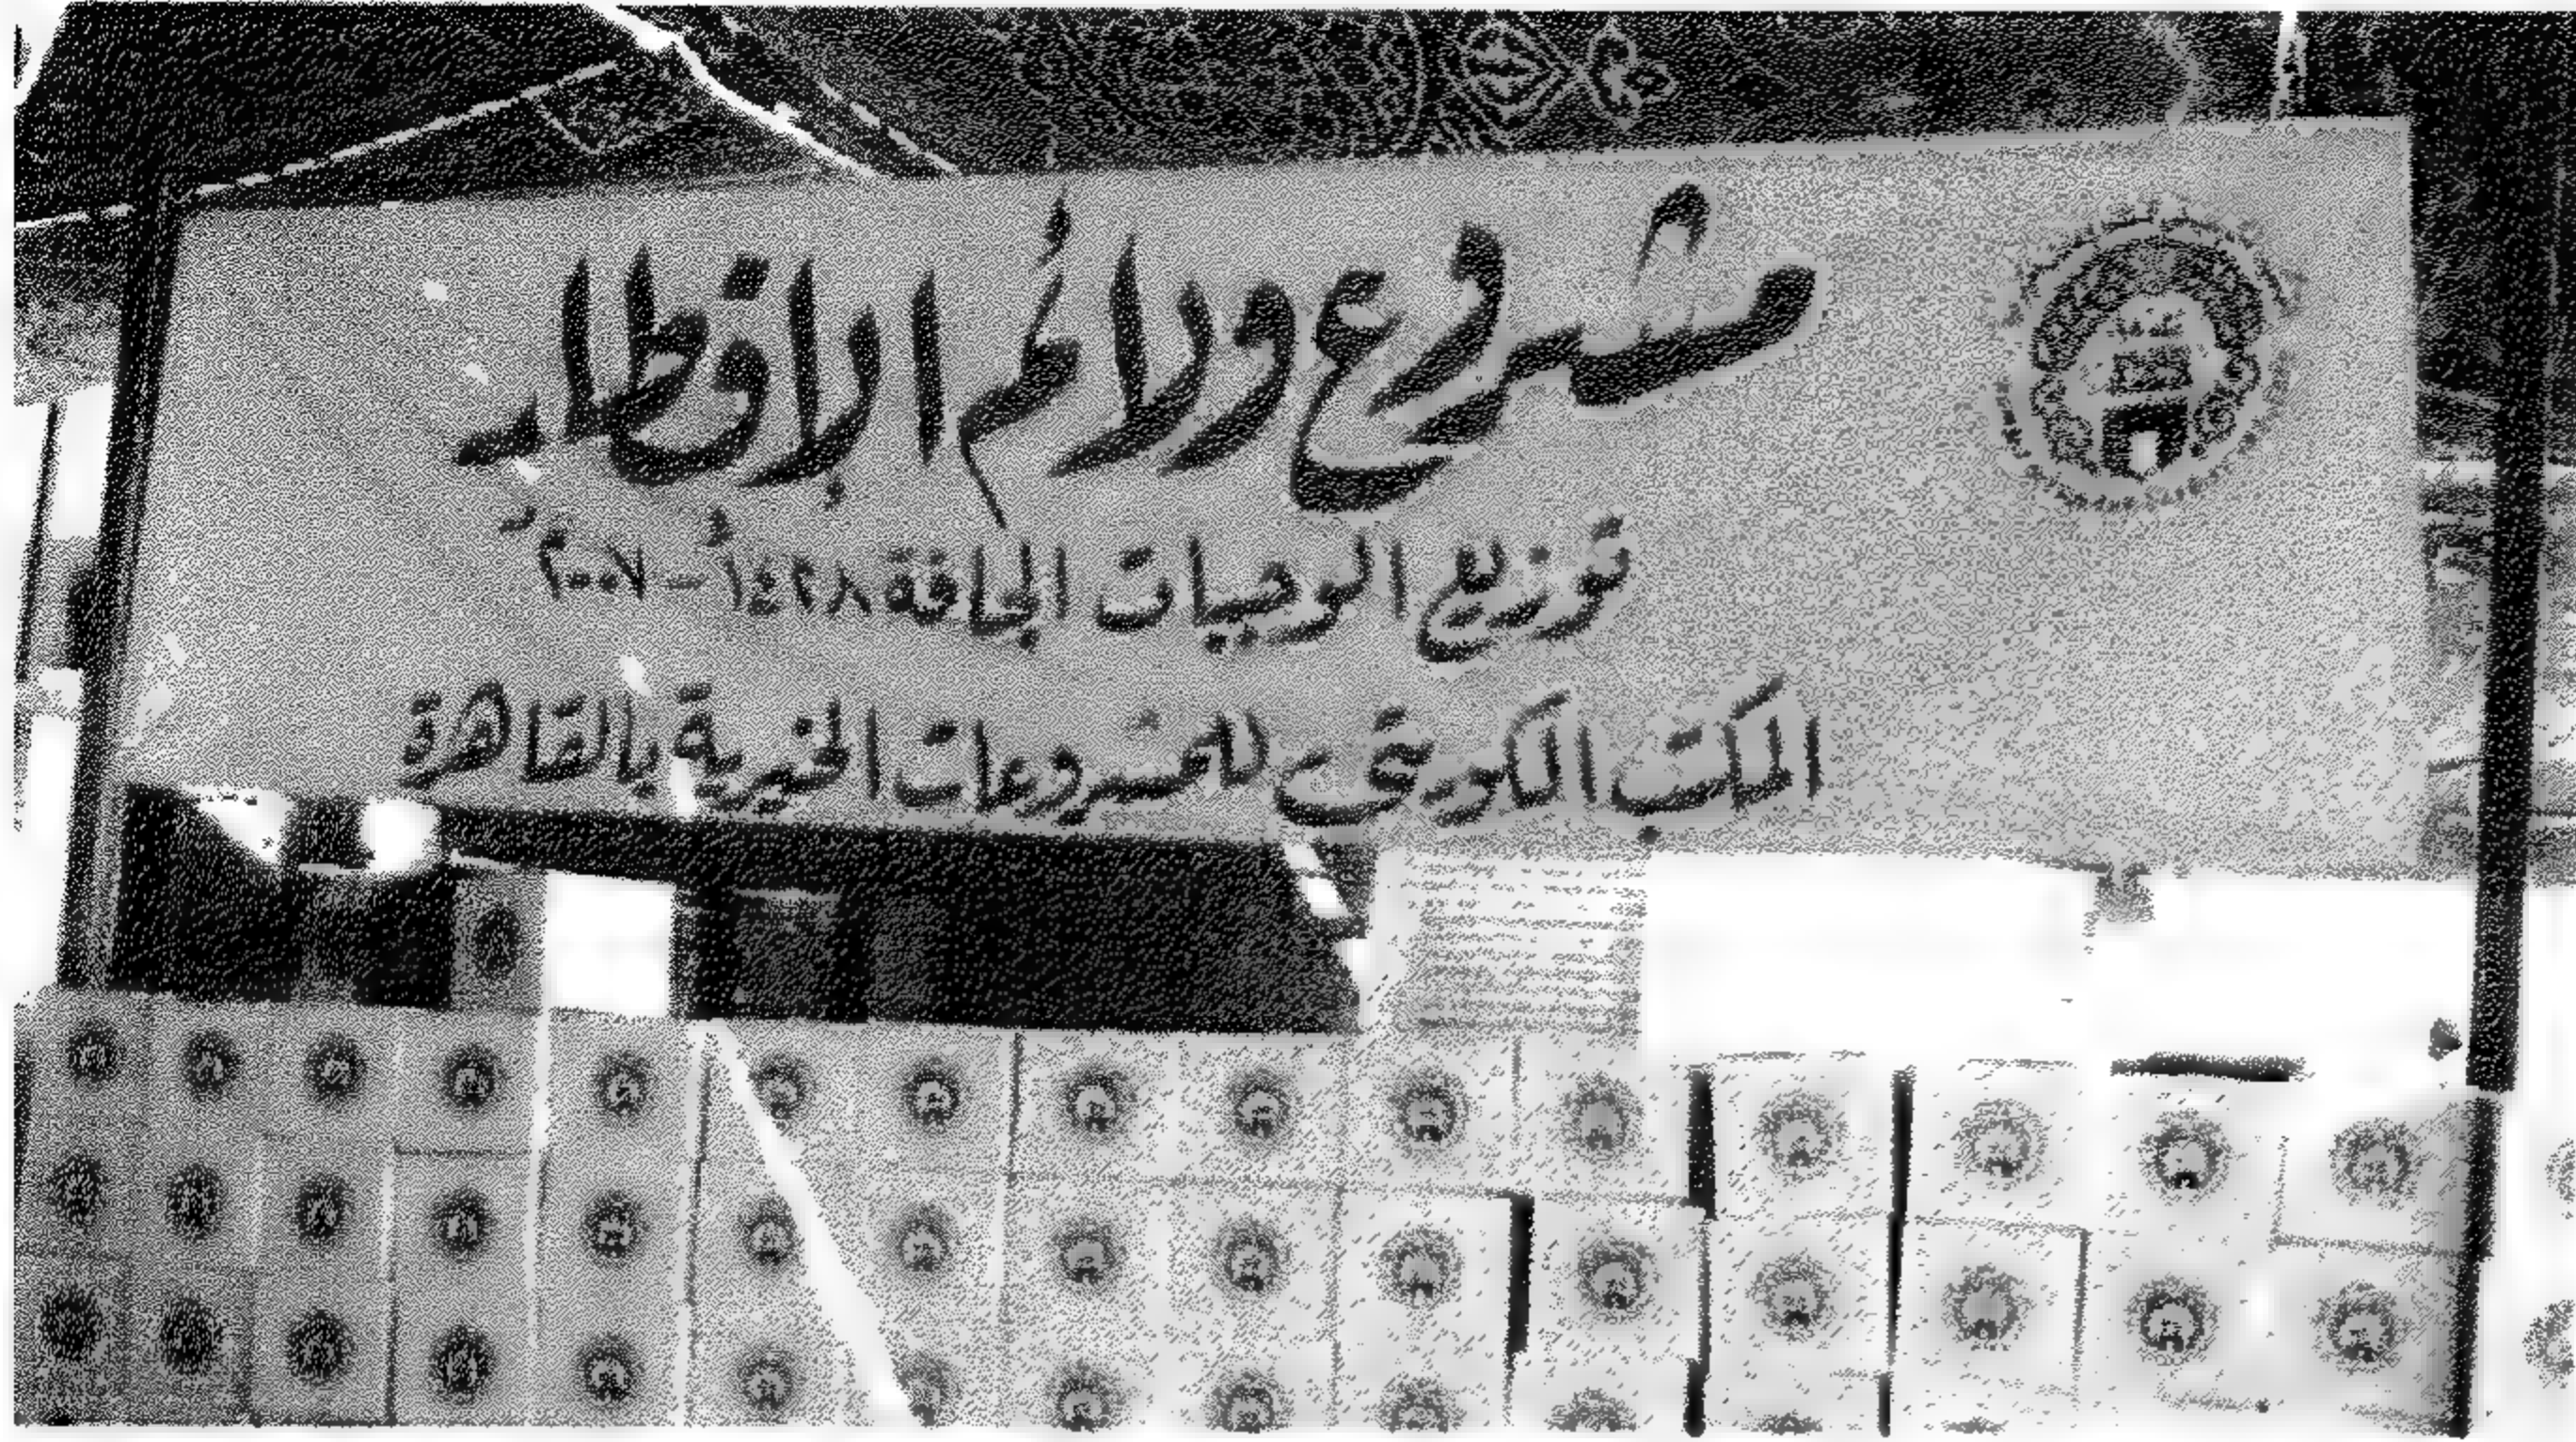 مشروع ولائم الإفطار
توزيع الوجبات الجافة ١٤٢٨ - ٢٠٠٧
المكتب الكويتي للمشروعات الخيرية بالقاهرة